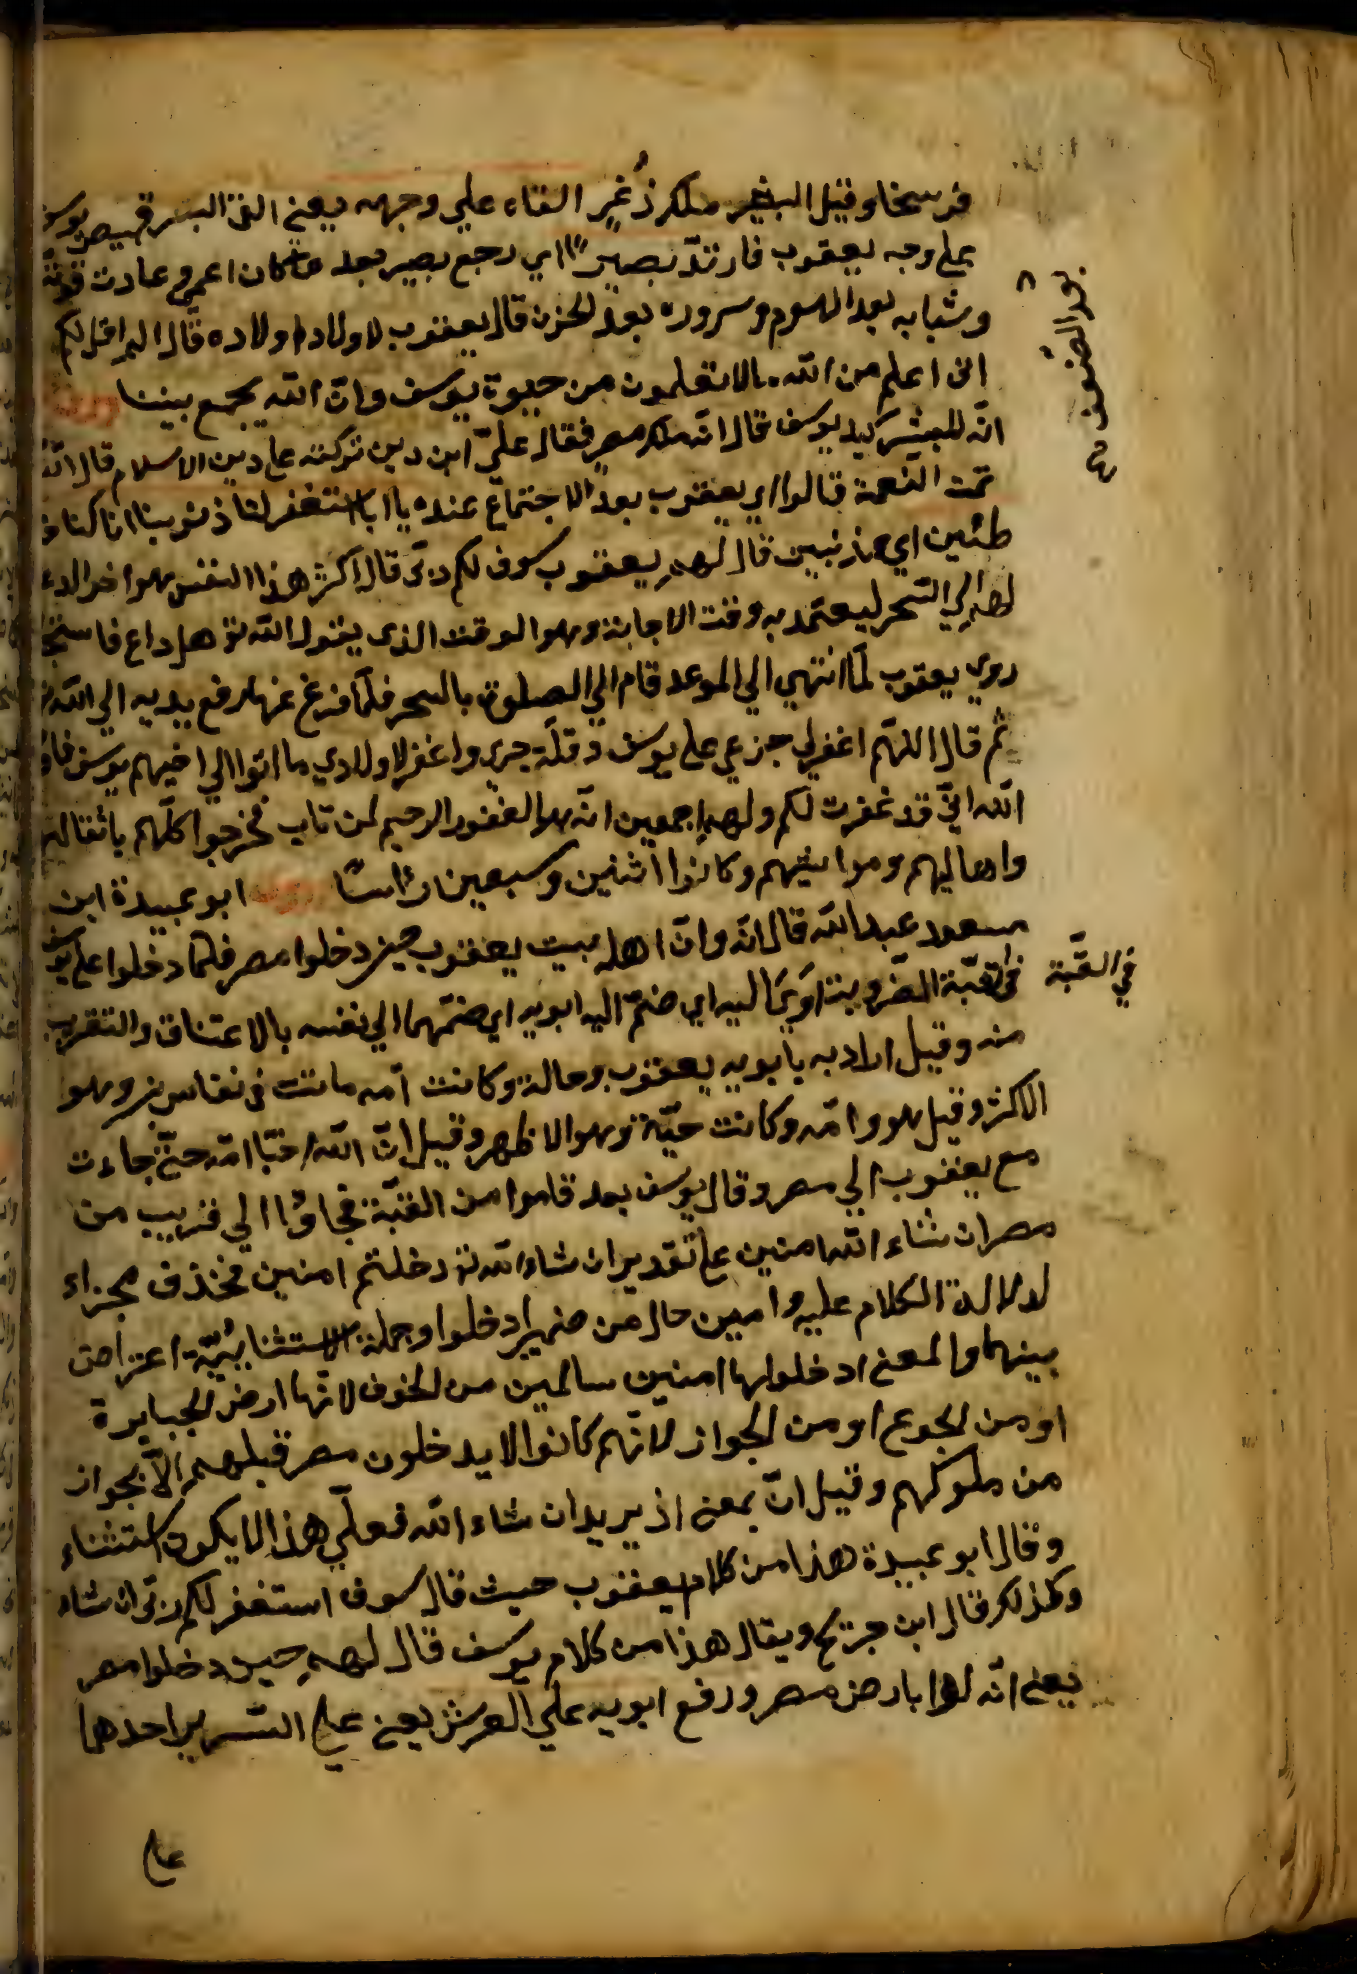 فرسخا وقيل البشير ملك ذعر القاه علي وجهه يعني القى البشير قميص يوسف
على وجه يعقوب فارتدّ بصيرا اي رجع بصير بعد ما كان اعمى وعادت قوته
بعد الضعف
وشبابه بعد الهرم وسروره بعد الحزن قال يعقوب لاولاد اولاده قال الم اقل لكم
انى اعلم من الله مالا تعلمون من حيوة يوسف وانّ الله يجمع بيننا
انّه للبشير كيف يوسف قال انّه ملك مصر فقال علىّ اىّ دين تركته على دين الاسلام قال الآن
تمت النعمة قالوا اى يعقوب بعد الاجتماع عنده يا ابانا استغفر لنا ذنوبنا انا كنا خا
طئين اي مذنبين قال لهم يعقوب سوف لكم ربّى قال اكثر هذا التفسير هو اخر الدعاء
لهم الي السّحر ليعتمد به وقت الاجابة وهو الوقت الذى يقول الله تع هل داع فاستجا
روي يعقوب لمّا انتهى الي الموعد قام الي الصلوة بالسحر فلمّا فرغ عنها رفع يديه الي الله تع
ثم قال اللهّم اغفرلي جزعي على يوسف وقلّة صبري واغفر لاولادي ما اتوا الي اخيهم يوسف فاو
الله انّي قد غفرت لكم ولهم اجمعين انّه هو الغفور الرحيم لمن تاب فخرجوا كلّهم باثقالهم
واهاليهم ومواشيهم وكانوا اثنين وسبعين رأسا ابو عبيدة ابن
مسعود عبدالله قال انّه وانّ اهل بيت يعقوب حين دخلوا مصر فلمّا دخلوا على يوسف
في القبّة
في قبّة المضروبة اوىَ اليه اي ضمّ اليه ابويه اي ضمّهما الي نفسه بالاعتناق والتقريب
منه وقيل اراد به بابويه يعقوب وخالة وكانت امّه ماتت في نفاس وهو
الاكثر وقيل هو وامّه وكانت حيّة وهو الاظهر وقيل انّ الله احيّا امّه حتّى جاءت
مع يعقوب الي مصر وقال يوسف بعد قاموا من القبّة فجاؤا الي قريب من
مصر ان شاء الله امنين على تقدير ان شاء الله تع دخلتم امنين فحذف جزاء
لدلالة الكلام عليه وامين حال من ضمير ادخلوا وجملة الاستثنائيّة اعتراض
بينهما والمعنى ادخلوها امنين سالمين من الخوف لانّها ارض الجبابرة
او من الجوع او من الجواز لانّهم كانوا لا يدخلون مصر قبلهم الاّ بجواز
من ملوكهم وقيل انّ بمعنى اذ يريد ان شاء الله فعلي هذا لا يكون استثناء
وقال ابو عبيدة هذا من كلام يعقوب حيث قال سوف استغفر لكم ربّى ان شاء
وكذلك قال ابن جريج ويقال هذا من كلام يوسف قال لهم حين دخلوا مصر
يعنى انّه لها بارض مصر ورفع ابويه علي العرش يعنى على السّرير احدهما
على